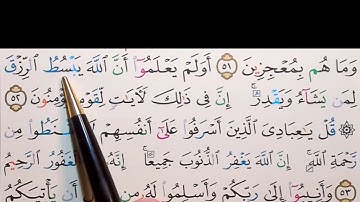 وَمَا هُم بِمُعْجِزِينَ ٥١ أَوَلَمْ يَعْلَمُوٓا۟ أَنَّ ٱللَّهَ يَبْسُطُ ٱلرِّزْقَ
لِمَن يَشَآءُ وَيَقْدِرُ ۚ إِنَّ فِى ذَٰلِكَ لَـَٔايَٰتٍ لِّقَوْمٍ يُؤْمِنُونَ ٥٢
۞ قُلْ يَٰعِبَادِىَ ٱلَّذِينَ أَسْرَفُوا۟ عَلَىٰٓ أَنفُسِهِمْ لَا تَقْنَطُوا۟ مِن
رَّحْمَةِ ٱللَّهِ ۚ إِنَّ ٱللَّهَ يَغْفِرُ ٱلذُّنُوبَ جَمِيعًا ۚ إِنَّهُۥ هُوَ ٱلْغَفُورُ ٱلرَّحِيمُ
٥٣ وَأَنِيبُوٓا۟ إِلَىٰ رَبِّكُمْ وَأَسْلِمُوا۟ لَهُۥ مِن قَبْلِ أَن يَأْتِيَكُمُ